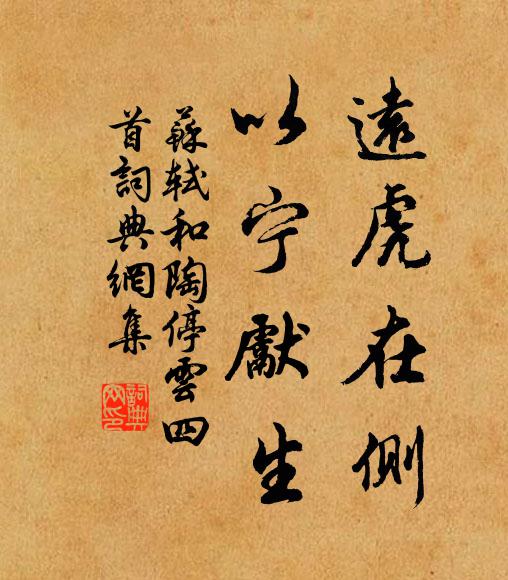 遠虎在側
以宁獻生
蘇軾和陶停雲四
首詞典網集
詞典
网印